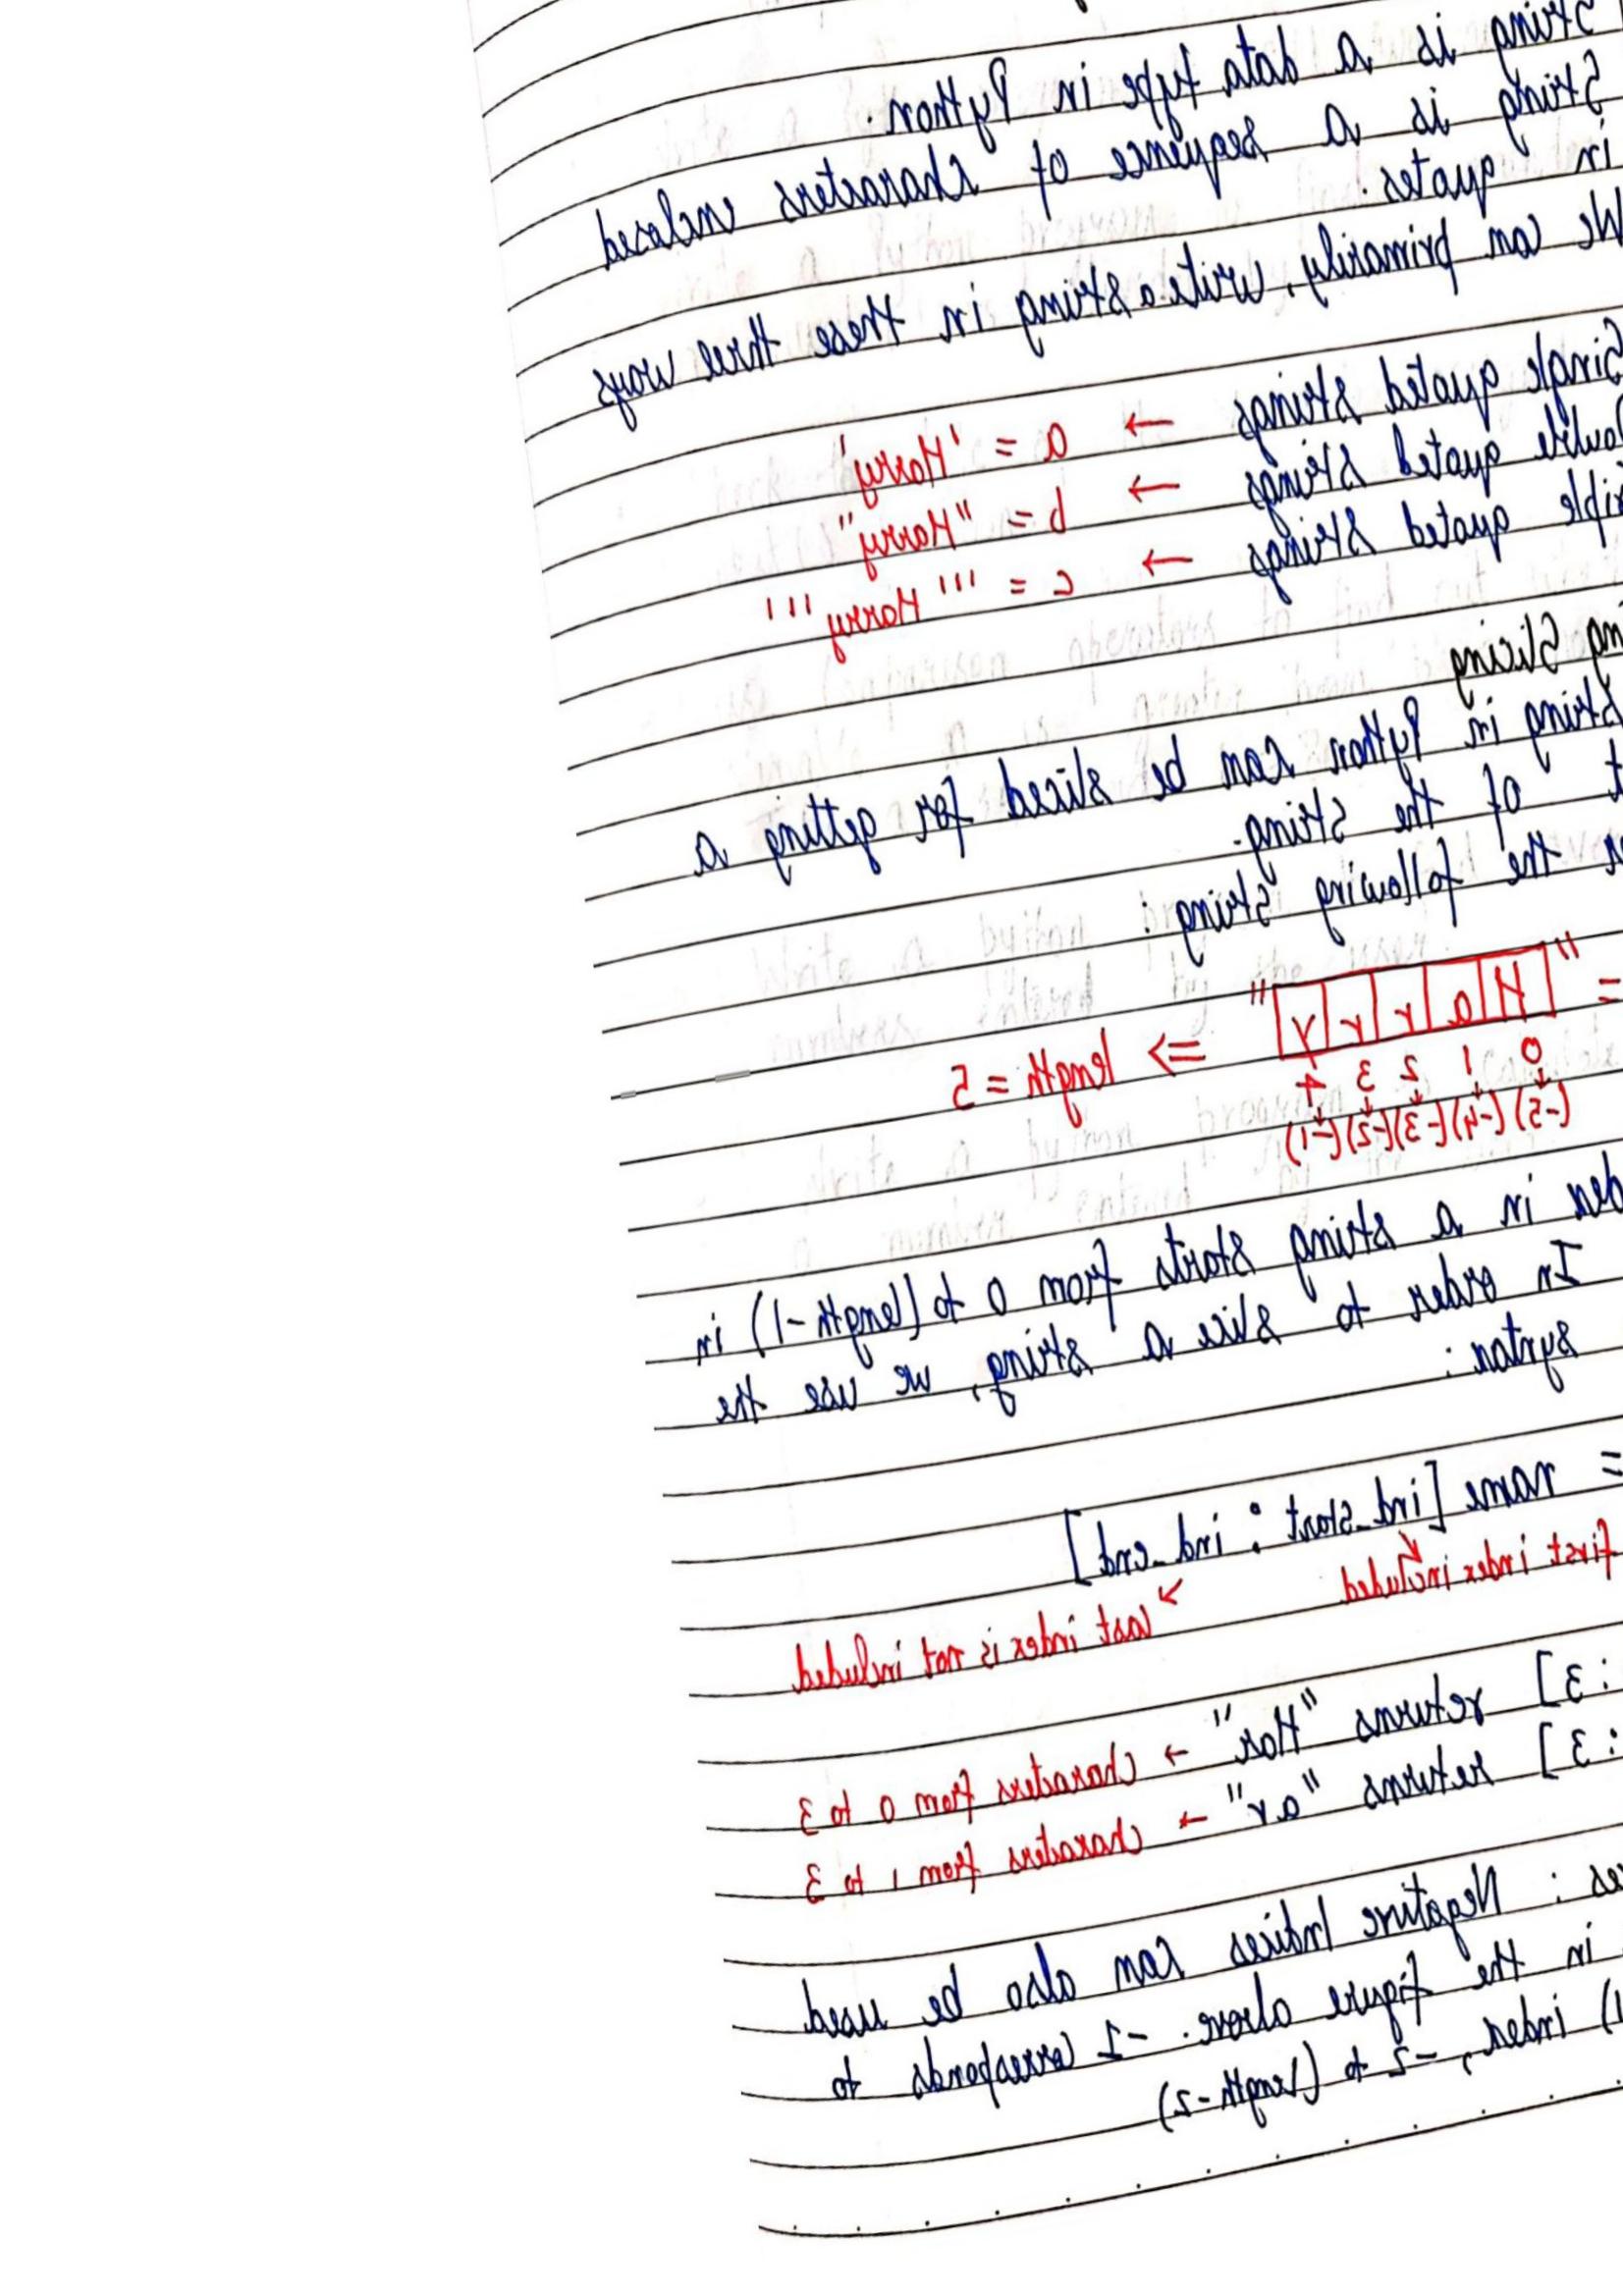 String is a data type in Python.
String is a sequence of characters enclosed
in quotes.
We can primarily, write a string in these three ways
Single quoted strings → a = 'Harry'
quoted strings → b = "Harry"
quoted strings → c = '''Harry'''
Slicing
String in Python can be sliced for getting a
of the string.
the following string :
= "Harry" => length = 5
0 1 2 3 4
(-5) (-4) (-3) (-2) (-1)
in a string starts from 0 to (length-1) in
In order to slice a string, we use the
syntax :
= name [ind_start : ind_end]
first index included
last index is not included
: 3] returns "Har" → characters from 0 to 3
: 3] returns "ar" → characters from 1 to 3
: Negative Indices can also be used
in the figure above. -1 corresponds to
) index, -2 to (length-2)